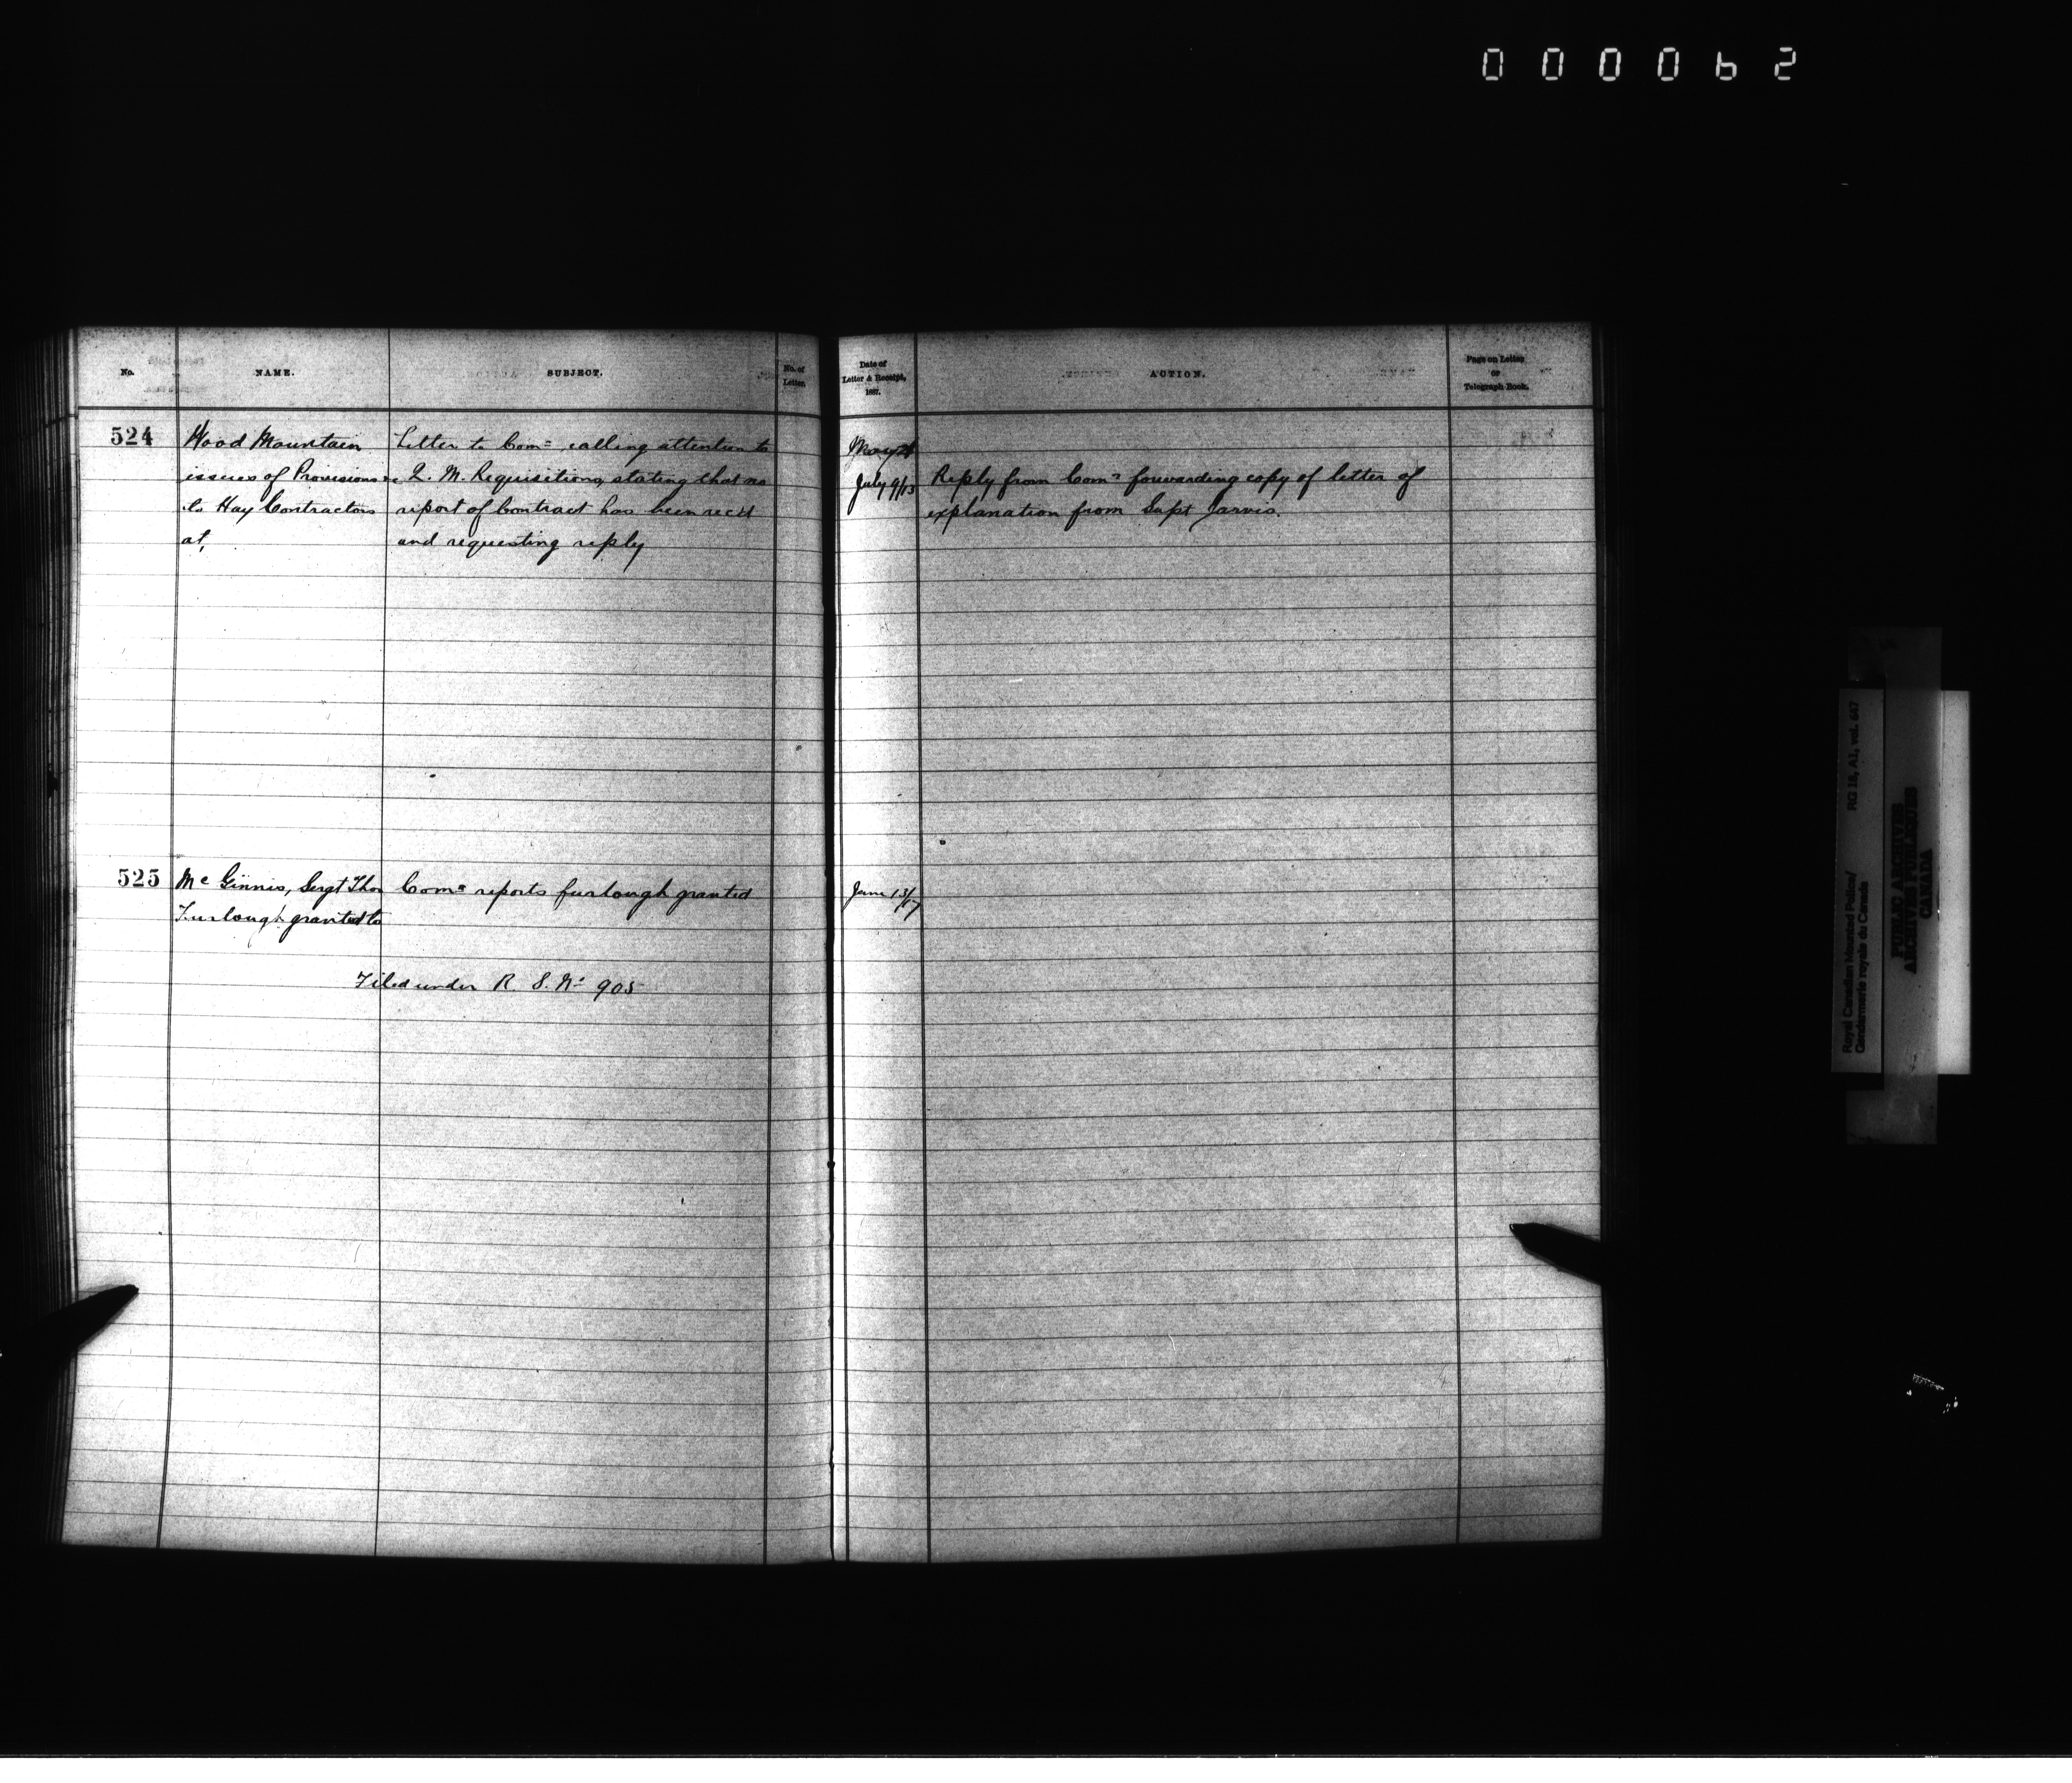 000062
No.
NAME.
SUBJECT.
No. of
Letter.
Date of
Letter & Receipt,
1887.
ACTION.
Page on Letter
or
Telegraph Book.
524
Wood Mountain
issues of Provisions
to Hay Contractors
at,
Letter to Comr calling attention to
Q. M. Requisitions, stating that no
report of Contract has been recd
and requesting reply
May 21
July 9/13
Reply from Comr forwarding copy of letter of
explanation from Supt Jarvis.
525
McGinnis, Sergt Thos
Furlough granted to
Comr reports furlough granted
June 13/17
Filed under R. S. No 905
Royal Canadian Mounted Police/
Gendarmerie royale du Canada
RG 18, A1, vol. 647
PUBLIC ARCHIVES
ARCHIVES PUBLIQUES
CANADA